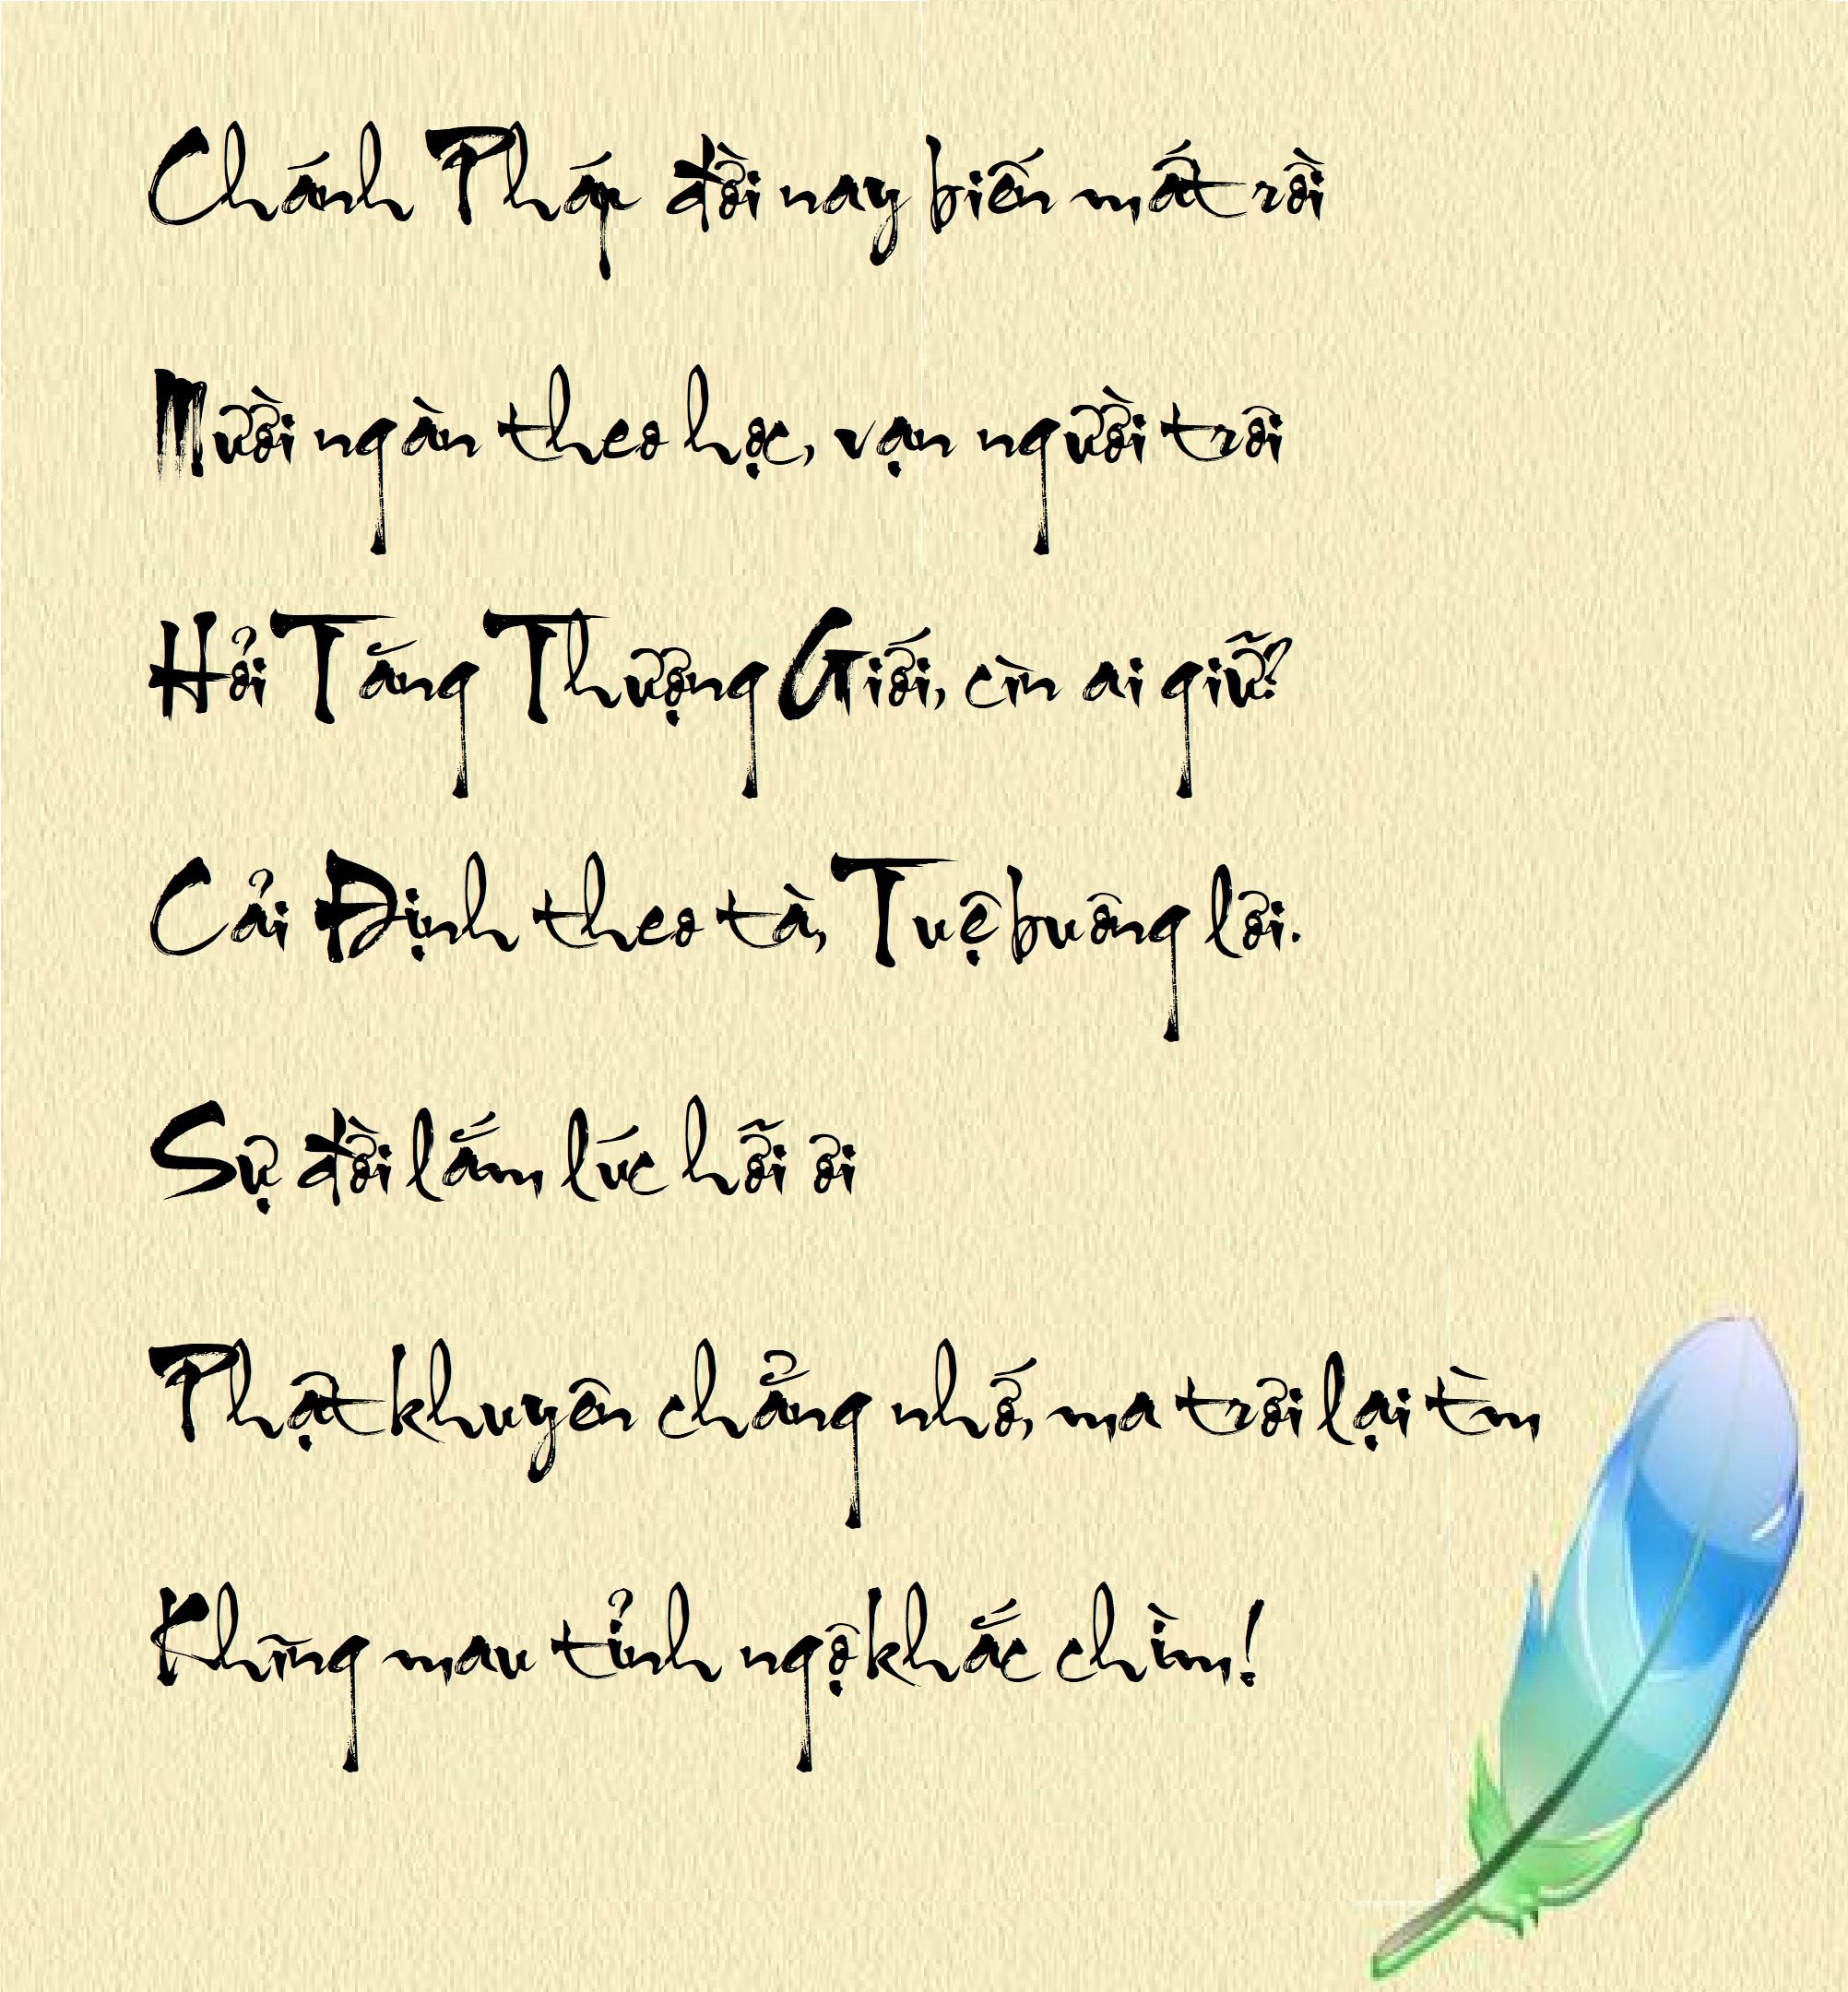 Chánh Pháp đời nay biến mất rồi
Mười ngàn theo học, vạn người trôi
Hỏi Tăng Thượng Giới, cìn ai giữ?
Cải Định theo tà, Tuệ buông lơi.
Sự đời lắm lúc hỡi ơi
Phật khuyên chẳng nhớ, ma trơi lại tìm
Khĩng mau tỉnh ngộ khắc chìm!